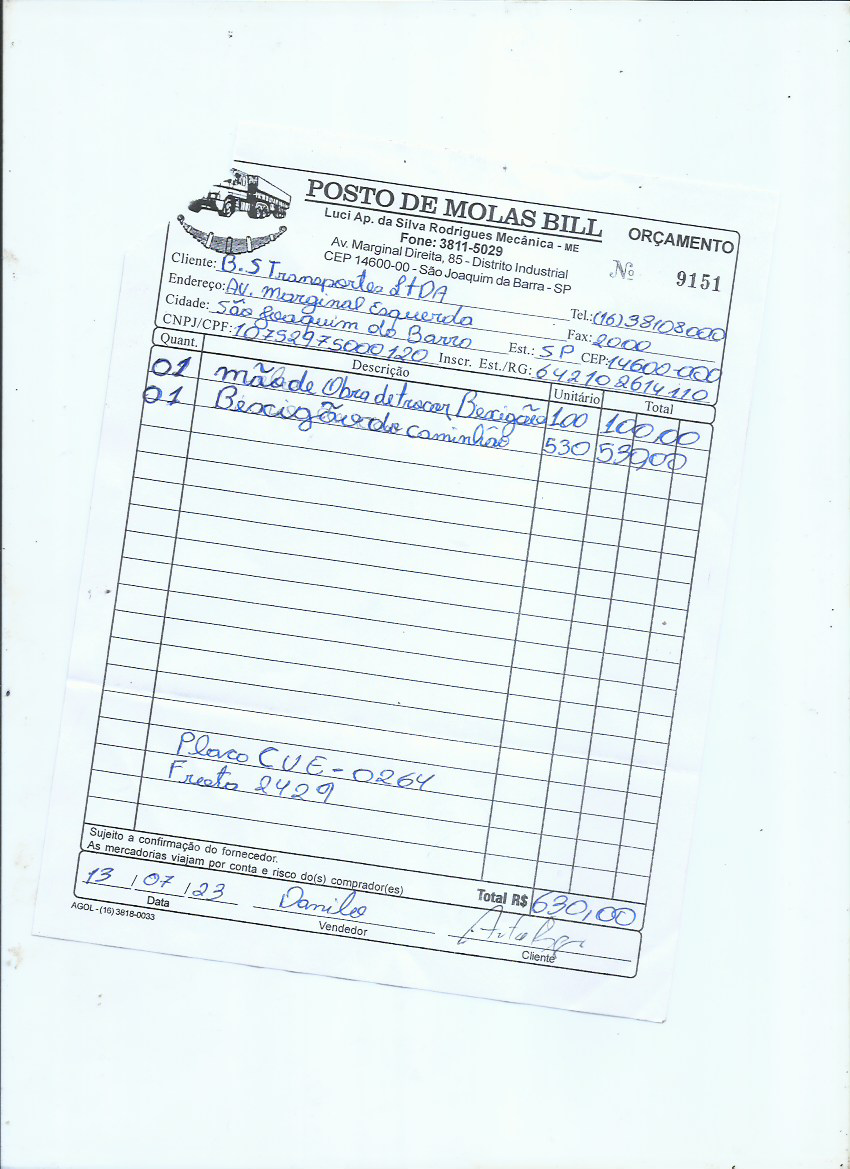 POSTO DE MOLAS BILL
ORÇAMENTO
Luci Ap. da Silva Rodrigues Mecânica - ME
Fone: 3811-5029
Av. Marginal Direita, 85 - Distrito Industrial
CEP 14600-00 - São Joaquim da Barra - SP
Nº 9151
Cliente: B.S Transportes LtDA Tel.: (16) 38108000
Endereço: AV. Marginal Esquerda Fax: 2000
Cidade: São Joaquim do Barro Est.: SP CEP: 14600-000
CNPJ/CPF: 10752975000120 Inscr. Est./RG: 642102614110
Quant. Descrição Unitário Total
01 mão de Obra de trocar Bexigão 100 100,00
01 Bexigão do caminhão 530 530,00
Placo CUE-0264
Freota 2429
Sujeito a confirmação do fornecedor.
As mercadorias viajam por conta e risco do(s) comprador(es)
Total R$ 630,00
13 / 07 / 23 Danilo
Data Vendedor Cliente
AGOL - (16) 3818-0033